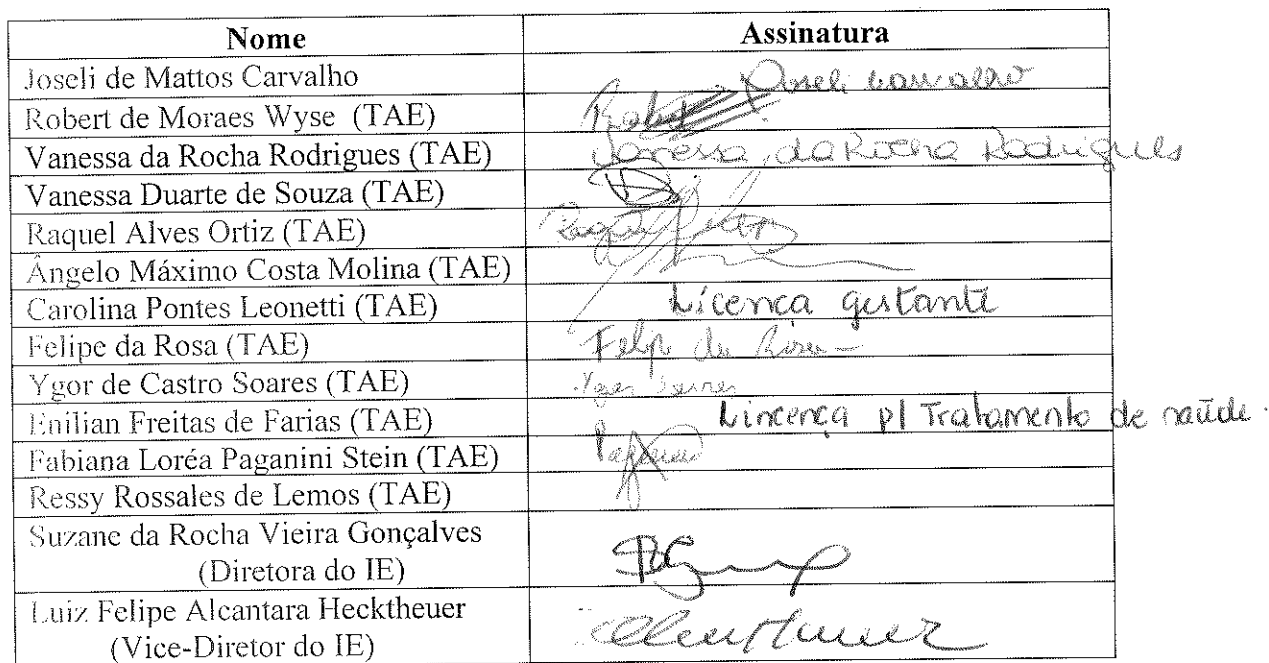 Nome Assinatura
Joseli de Mattos Carvalho Joseli Carvalho
Robert de Moraes Wyse (TAE) Robert
Vanessa da Rocha Rodrigues (TAE) Vanessa da Rocha Rodrigues
Vanessa Duarte de Souza (TAE)
Raquel Alves Ortiz (TAE) Raquel
Ângelo Máximo Costa Molina (TAE)
Carolina Pontes Leonetti (TAE) Licença gestante
Felipe da Rosa (TAE) Felipe da Rosa
Ygor de Castro Soares (TAE) Ygor Soares
Enilian Freitas de Farias (TAE) Lincença p/ Tratamento de saúde.
Fabiana Loréa Paganini Stein (TAE)
Ressy Rossales de Lemos (TAE)
Suzane da Rocha Vieira Gonçalves
(Diretora do IE)
Luiz Felipe Alcantara Hecktheuer
(Vice-Diretor do IE)